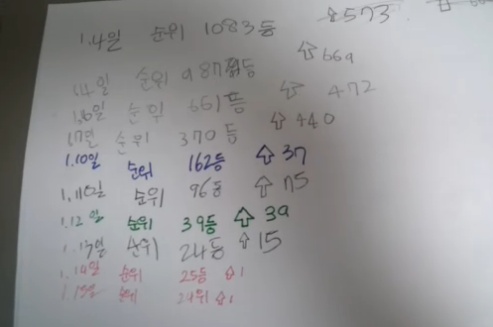 1.4일 순위 1083등 8573
1.4일 순위 987등 ⇧669
1.6일 순위 661등 ⇧ 472
1.7일 순위 370등 ⇧440
1.10일 순위 162등 ⇧37
1.10일 순위 96등 ⇧75
1.12일 순위 39등 ⇧39
1.13일 순위 24등 ⇧15
1.14일 순위 25등 ⇧1
순위 24위 ⇧1